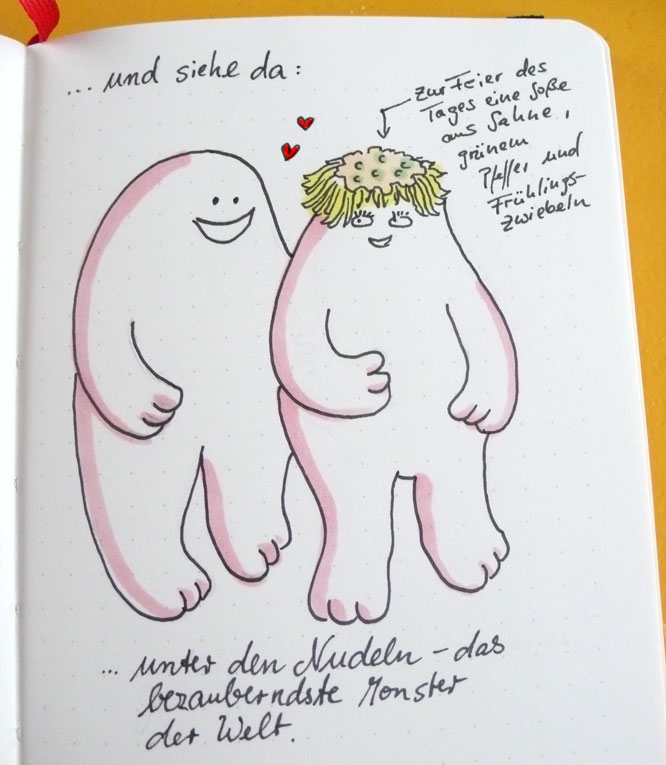 ... und siehe da:
zur Feier des
Tages eine Soße
aus Sahne,
grünem
Pfeffer und
Frühlings-
zwiebeln
... unter den Nudeln – das
bezauberndste Monster
der Welt.